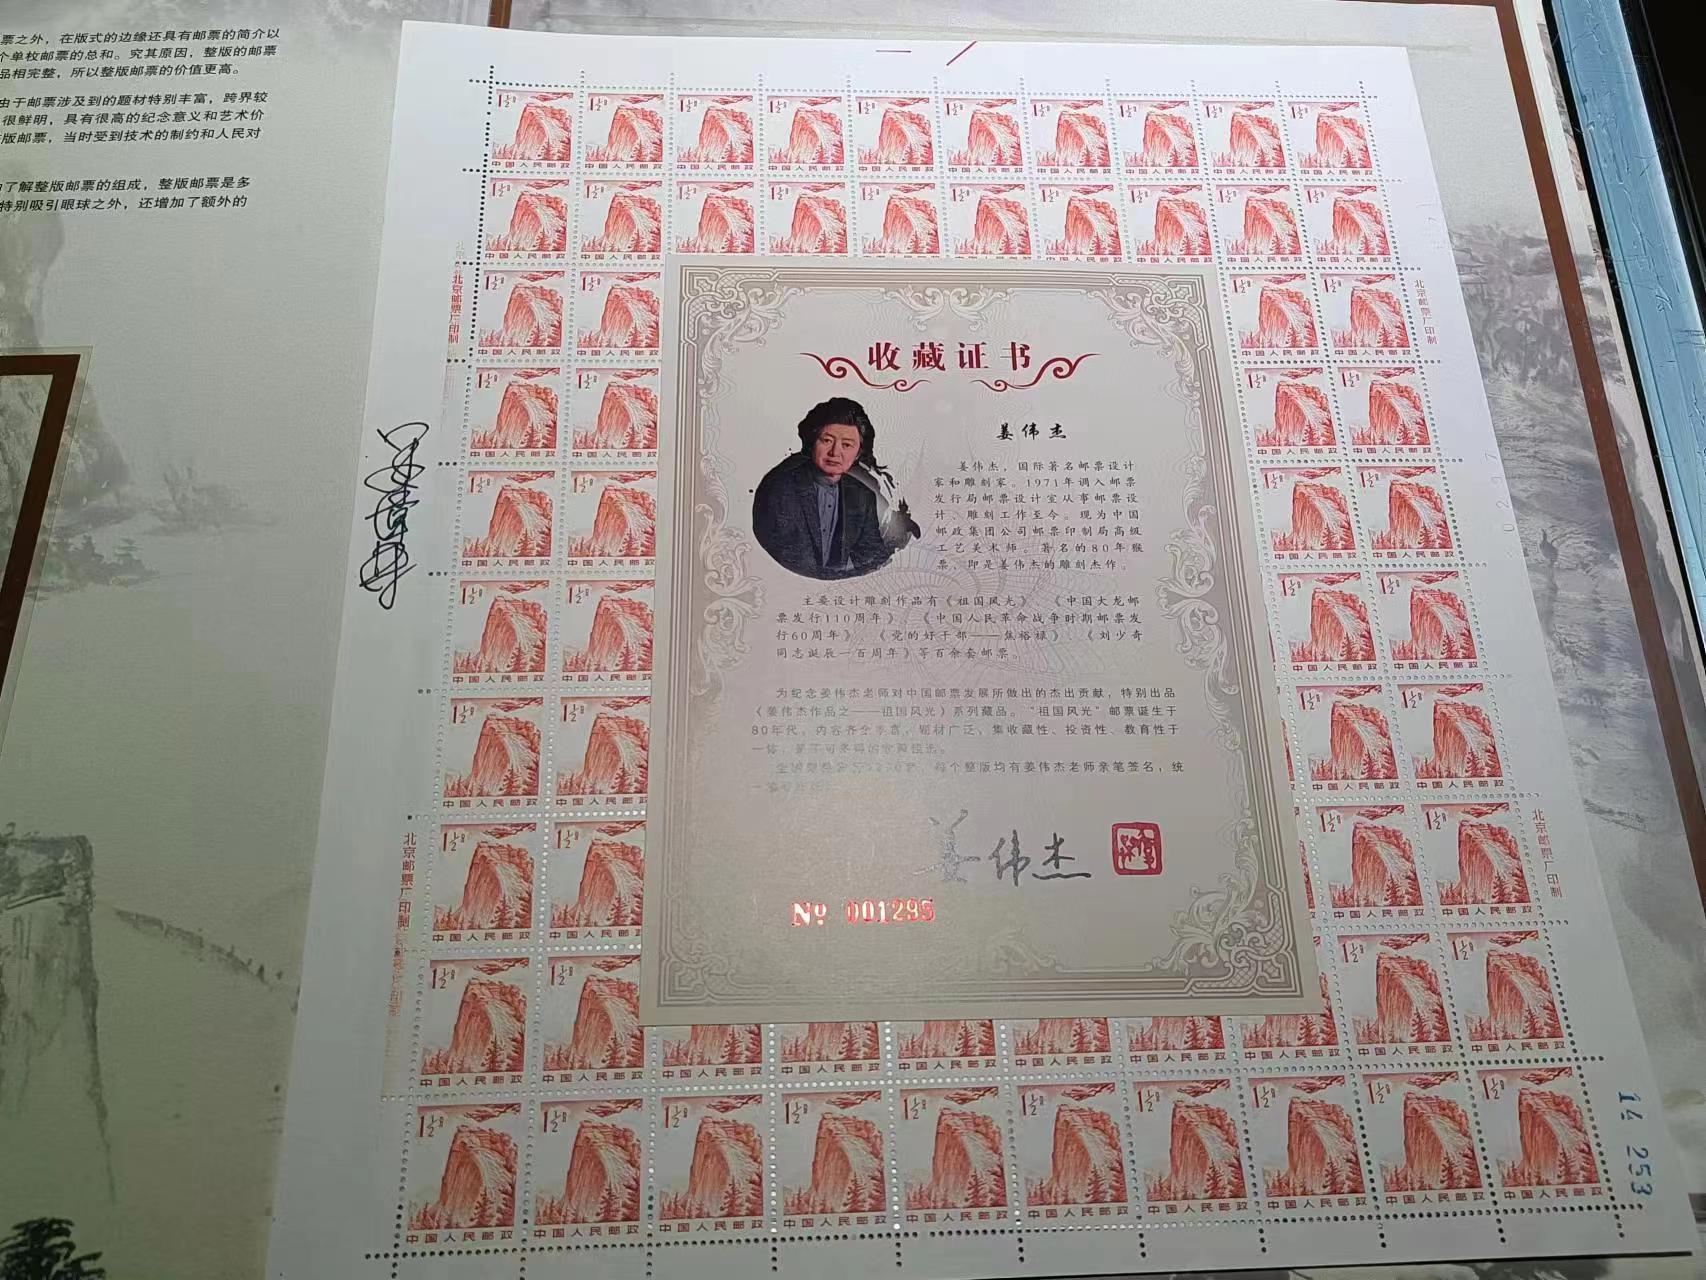 票之外，在版式的边缘还具有邮票的简介以
个单枚邮票的总和。究其原因，整版的邮票
品相完整，所以整版邮票的价值更高。
由于邮票涉及到的题材特别丰富，跨界较
很鲜明，具有很高的纪念意义和艺术价
版邮票，当时受到技术的制约和人民对
了解整版邮票的组成，整版邮票是多
特别吸引眼球之外，还增加了额外的
1½分
中国人民邮政
北京邮票厂印制
北京邮票厂印制
北京邮票厂印制
北京邮票厂印制
收藏证书
姜伟杰
姜伟杰，国际著名邮票设计
家和雕刻家。1971年调入邮票
发行局邮票设计室从事邮票设
计、雕刻工作至今。现为中国
邮政集团公司邮票印制局高级
工艺美术师。著名的80年猴
票，即是姜伟杰的雕刻杰作。
主要设计雕刻作品有《祖国风光》、《中国大龙邮
票发行110周年》、《中国人民革命战争时期邮票发
行60周年》、《党的好干部——焦裕禄》、《刘少奇
同志诞辰一百周年》等百余套邮票。
为纪念姜伟杰老师对中国邮票发展所做出的杰出贡献，特别出品
《姜伟杰作品之——祖国风光》系列藏品。"祖国风光"邮票诞生于
80年代，内容齐全丰富，题材广泛，集收藏性、投资性、教育性于
一体，
每个整版均有姜伟杰老师亲笔签名，统
姜伟杰
№ 001295
14 253